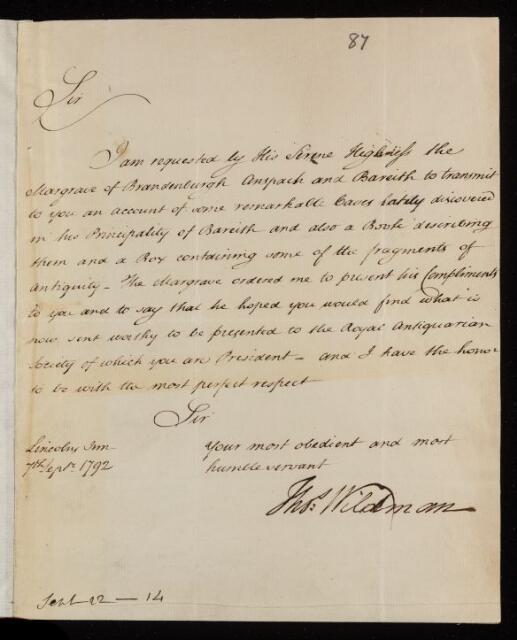 87
Sir
I am requested by His Sirene Highness the
Margrave of Brandenburgh Anspach and Bareith to transmit
to you an account of some remarkable Caves lately discovered
in his Principality of Bareith and also a Book describing
them and a Box containing some of the fragments of
Antiquity - The Margrave ordered me to present his Compliments
to you and to say that he hoped you would find what is
now sent worthy to be presented to the Royal Antiquarian
Society of which you are President - and I have the honor
to be with the most perfect respect
Sir
Your most obedient and most
humble servant
Lincolns Inn
7th Septr. 1792
Thos. Wildman
Sept 22 - 14